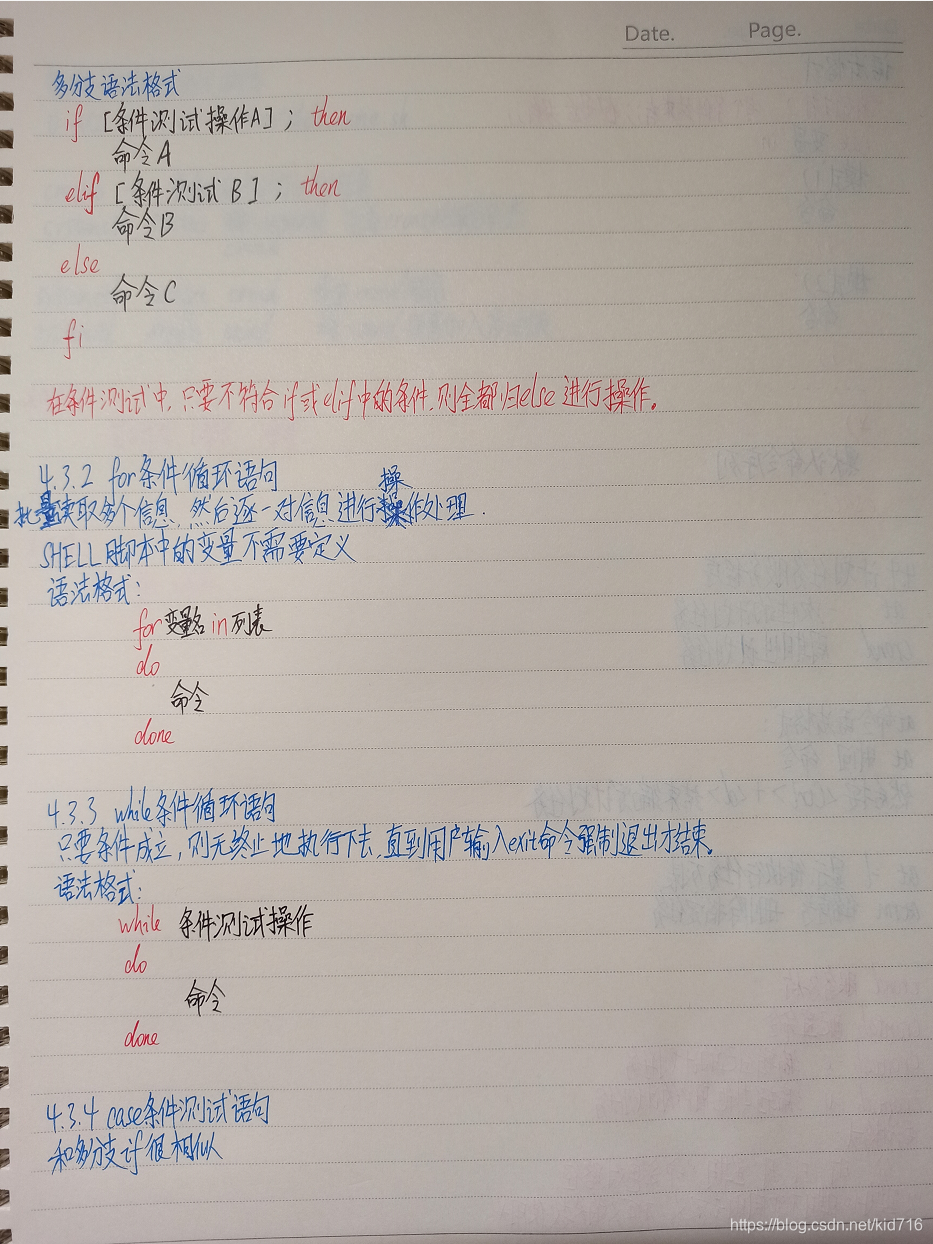 Date. Page.
多分支语法格式
if [条件测试操作A] ; then
命令A
elif [条件测试B] ; then
命令B
else
命令C
fi
在条件测试中,只要不符合if或elif中的条件,则全都归else进行操作。
4.3.2 for条件循环语句
操
批量读取多个信息,然后逐一对信息进行操作处理.
SHELL脚本中的变量不需要定义
语法格式:
for 变量名 in 列表
do
命令
done
4.3.3 while条件循环语句
只要条件成立,则无终止地执行下去,直到用户输入exit命令强制退出才结束。
语法格式:
while 条件测试操作
do
命令
done
4.3.4 case条件测试语句
和多分支if很相似
https://blog.csdn.net/kid716